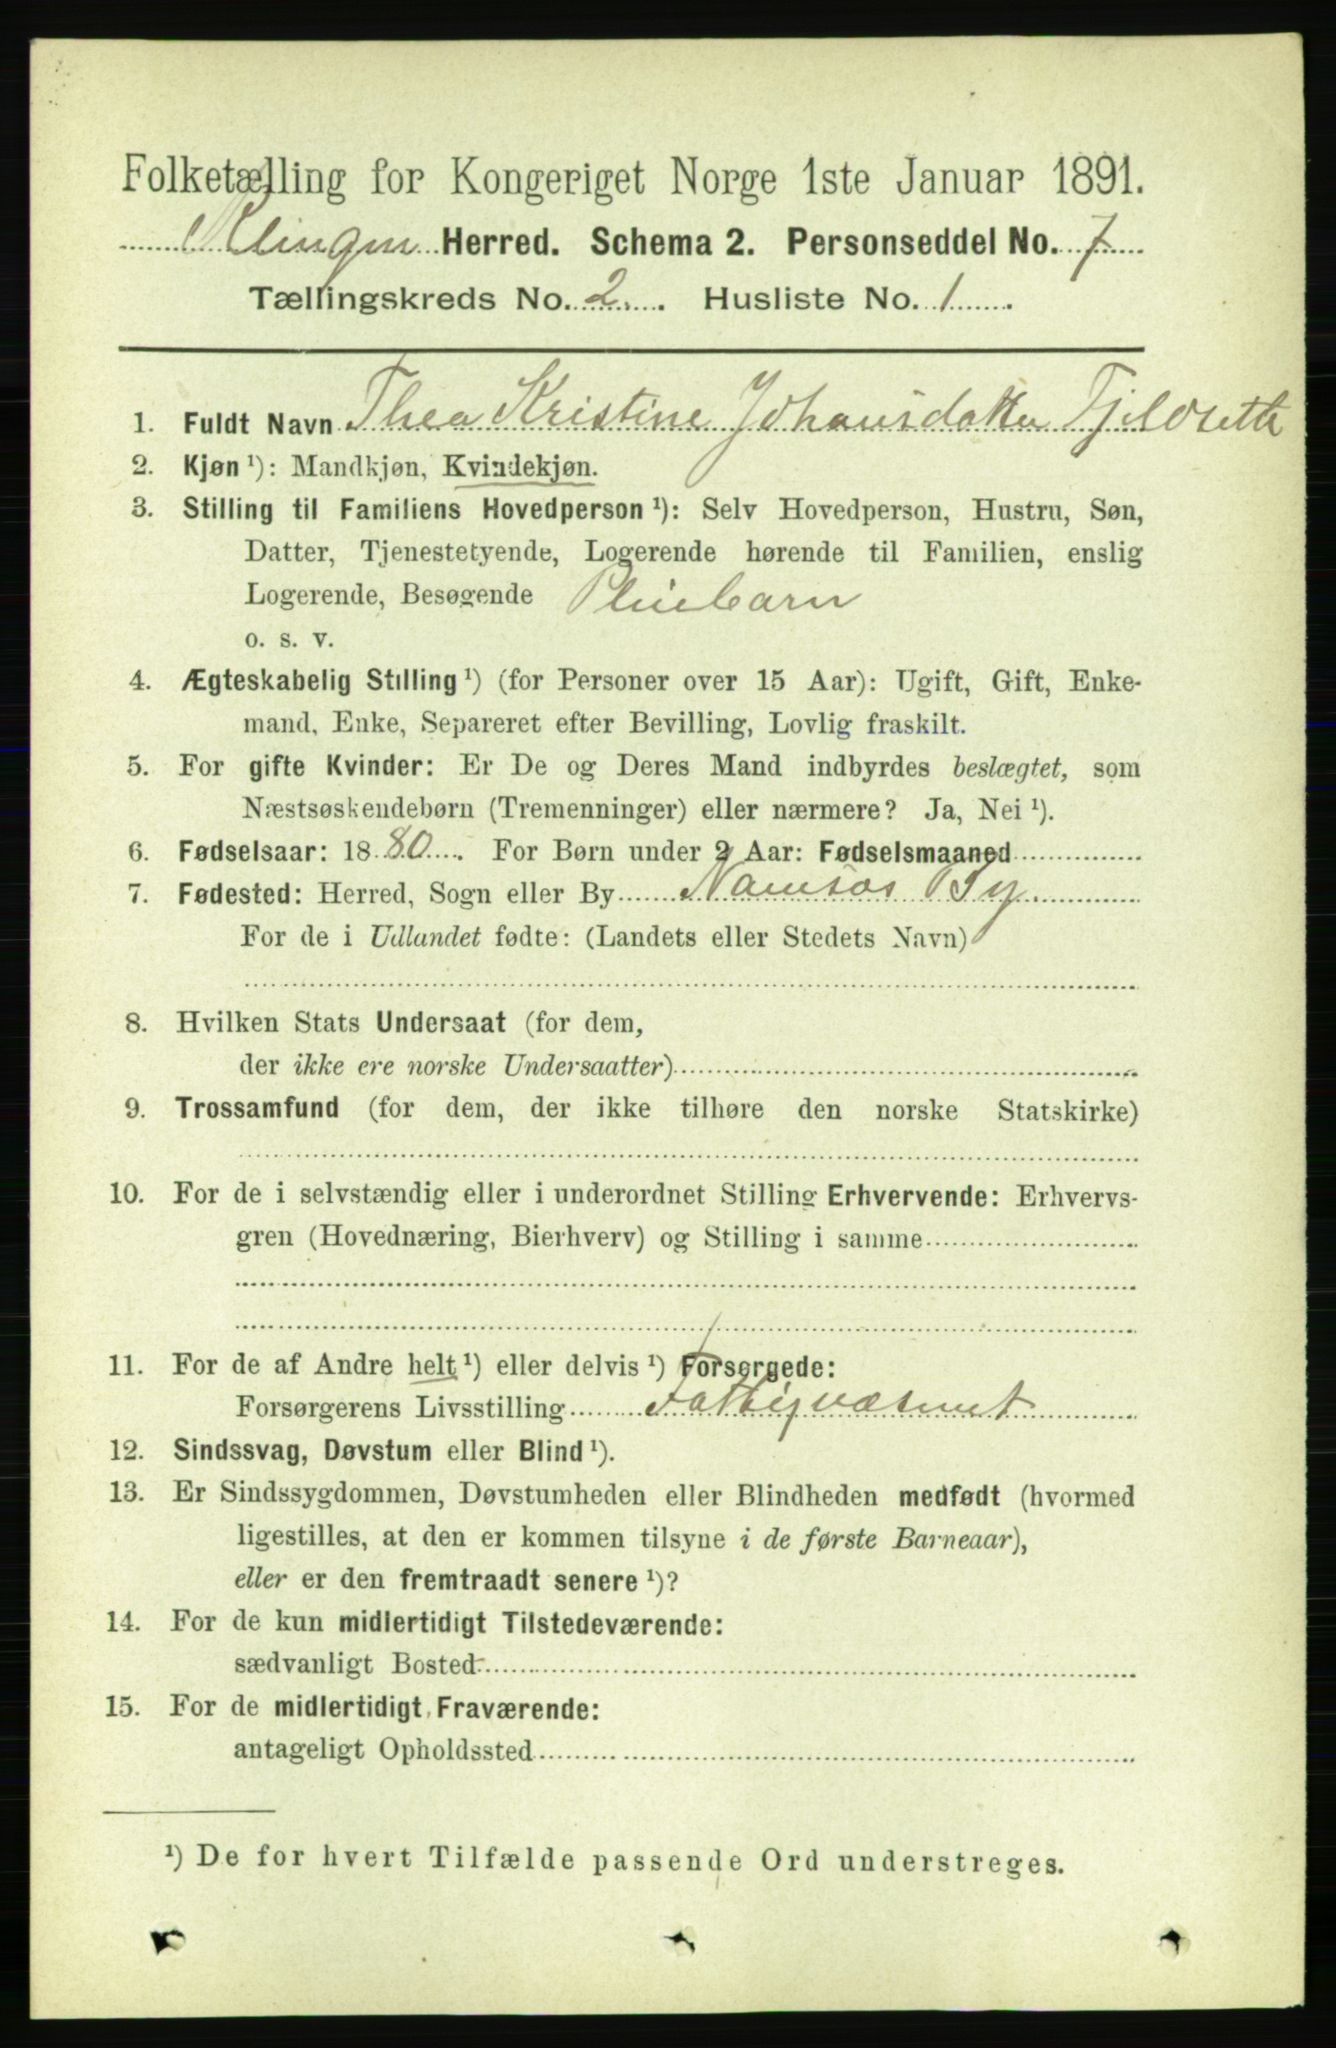 Folketælling for Kongeriget Norge 1ste Januar 1891.
Klingen Herred. Schema 2. Personseddel No. 7
Tællingskreds No. 2. Husliste No. 1
1. Fuldt Navn Thea Kristine Johansdatter Fjeldseth
2. Kjøn ¹): Mandkjøn, Kvindekjøn.
3. Stilling til Familiens Hovedperson ¹): Selv Hovedperson, Hustru, Søn,
Datter, Tjenestetyende, Logerende hørende til Familien, enslig
Logerende, Besøgende Pleiebarn
o. s. v.
4. Ægteskabelig Stilling ¹) (for Personer over 15 Aar): Ugift, Gift, Enke-
mand, Enke, Separeret efter Bevilling, Lovlig fraskilt.
5. For gifte Kvinder: Er De og Deres Mand indbyrdes beslægtet, som
Næstsøskendebørn (Tremenninger) eller nærmere? Ja, Nei ¹).
6. Fødselsaar: 1880. For Børn under 2 Aar: Fødselsmaaned
7. Fødested: Herred, Sogn eller By Namsos By
For de i Udlandet fødte: (Landets eller Stedets Navn)
8. Hvilken Stats Undersaat (for dem,
der ikke ere norske Undersaatter)
9. Trossamfund (for dem, der ikke tilhøre den norske Statskirke)
10. For de i selvstændig eller i underordnet Stilling Erhvervende: Erhvervs-
gren (Hovednæring, Bierhverv) og Stilling i samme
11. For de af Andre helt ¹) eller delvis ¹) Forsørgede:
Forsørgerens Livsstilling Fattigvæsenet
12. Sindssvag, Døvstum eller Blind ¹).
13. Er Sindssygdommen, Døvstumheden eller Blindheden medfødt (hvormed
ligestilles, at den er kommen tilsyne i de første Barneaar),
eller er den fremtraadt senere ¹)?
14. For de kun midlertidigt Tilstedeværende:
sædvanligt Bosted
15. For de midlertidigt Fraværende:
antageligt Opholdssted
¹) De for hvert Tilfælde passende Ord understreges.